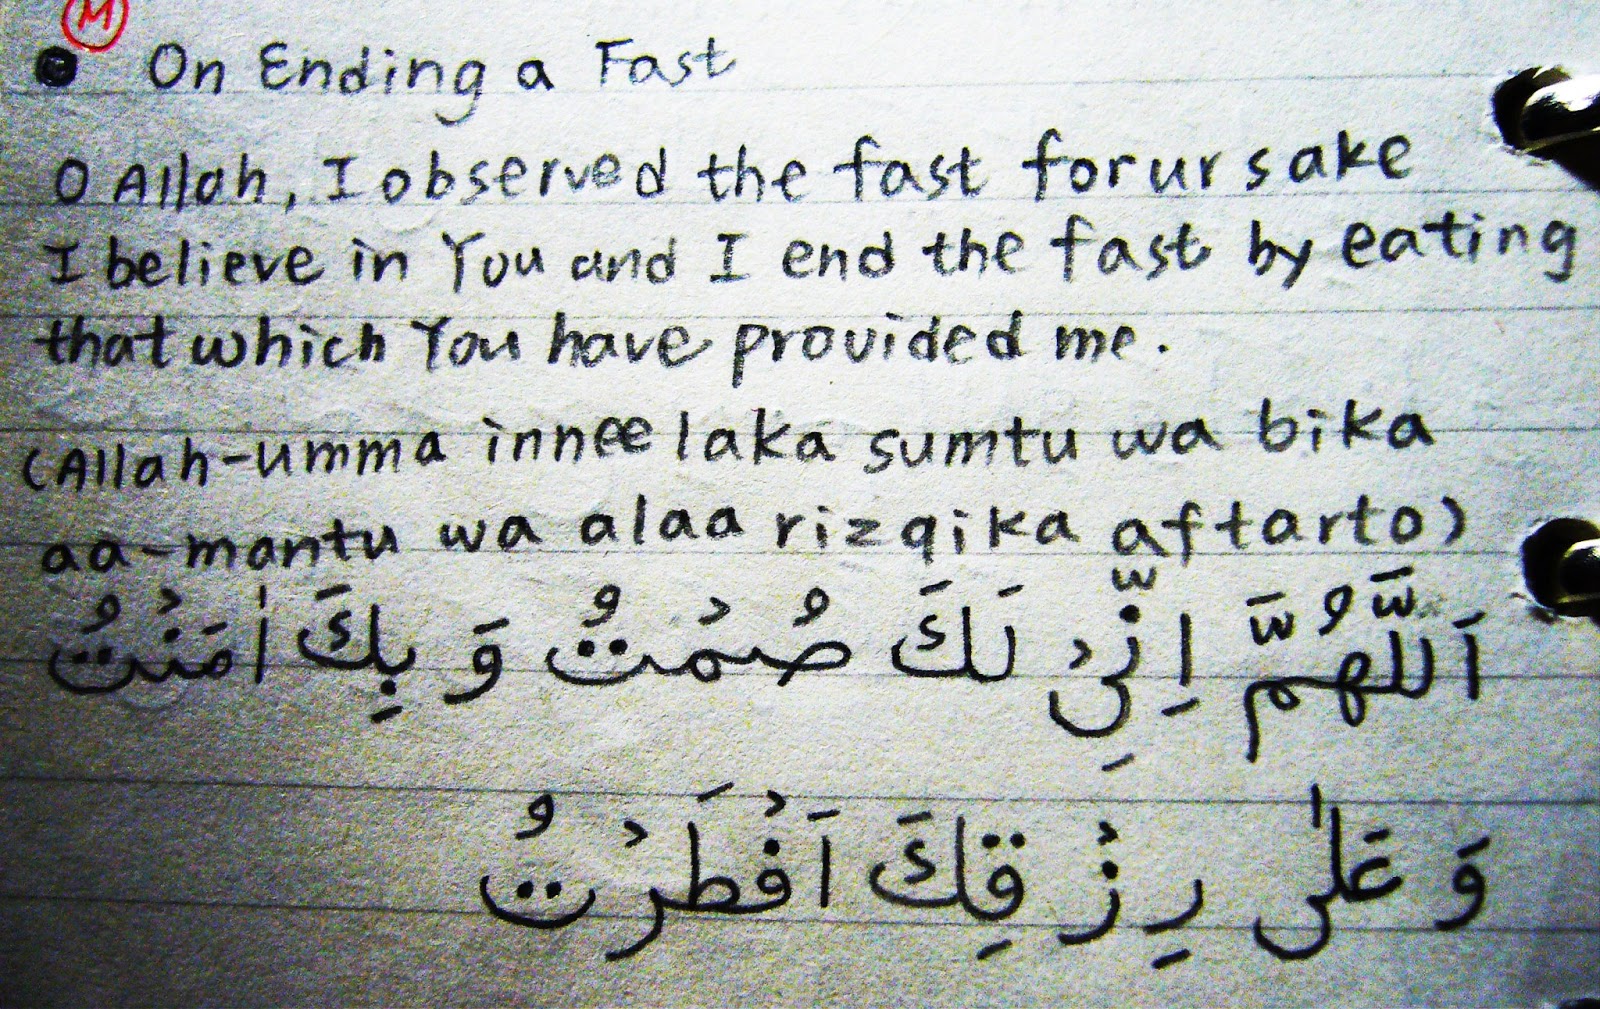 M
On Ending a Fast
O Allah, I observed the fast for ur sake
I believe in You and I end the fast by eating
that which You have provided me.
(Allah-umma innee laka sumtu wa bika
aa-mantu wa alaa rizqika aftarto)
اَللّٰهُمَّ اِنِّىْ لَكَ صُمْتُ وَ بِكَ اٰمَنْتُ
وَ عَلٰى رِزْقِكَ اَفْطَرْتُ